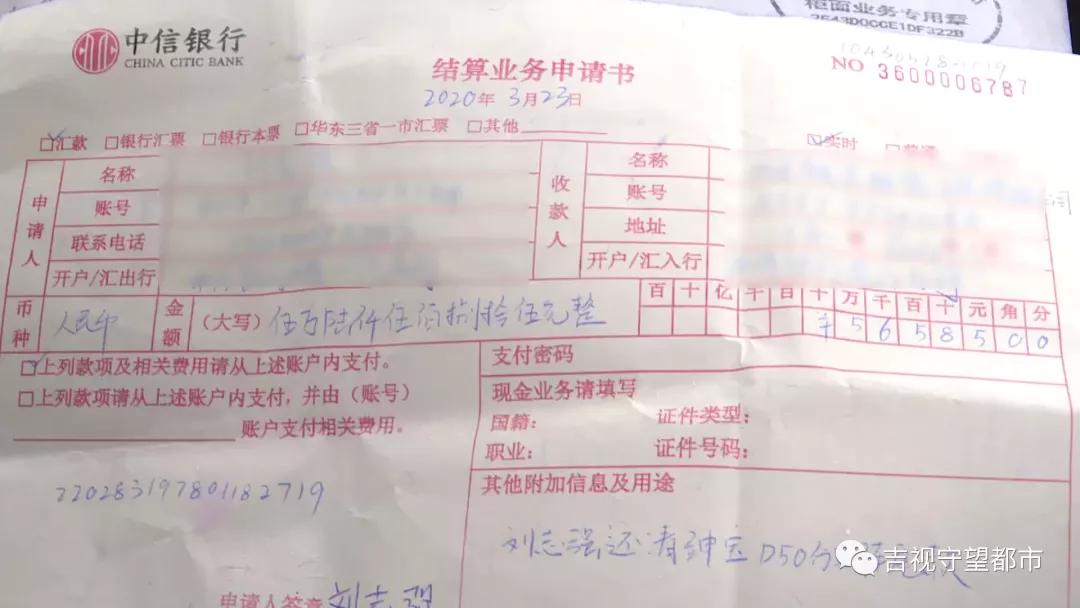 柜面业务专用章
2E43D0CCE1DF322B
中信银行
CHINA CITIC BANK
结算业务申请书
NO 3600006787
2020年 3月23日
汇款 银行汇票 银行本票 华东三省一市汇票 其他
实时 普通
申请人 名称 收款人 名称
账号 账号
联系电话 地址
开户/汇出行 开户/汇入行
币种 人民币 金额 (大写) 伍万陆仟伍佰捌拾伍元整
百 十 亿 千 百 十 万 千 百 十 元 角 分
¥ 5 6 5 8 5 0 0
上列款项及相关费用请从上述账户内支付。
支付密码
上列款项请从上述账户内支付，并由（账号）
账户支付相关费用。
现金业务请填写
国籍： 证件类型：
职业： 证件号码：
其他附加信息及用途
220283197801182719
刘志强还清绅宝D50分
申请人签章 刘志强
吉视守望都市